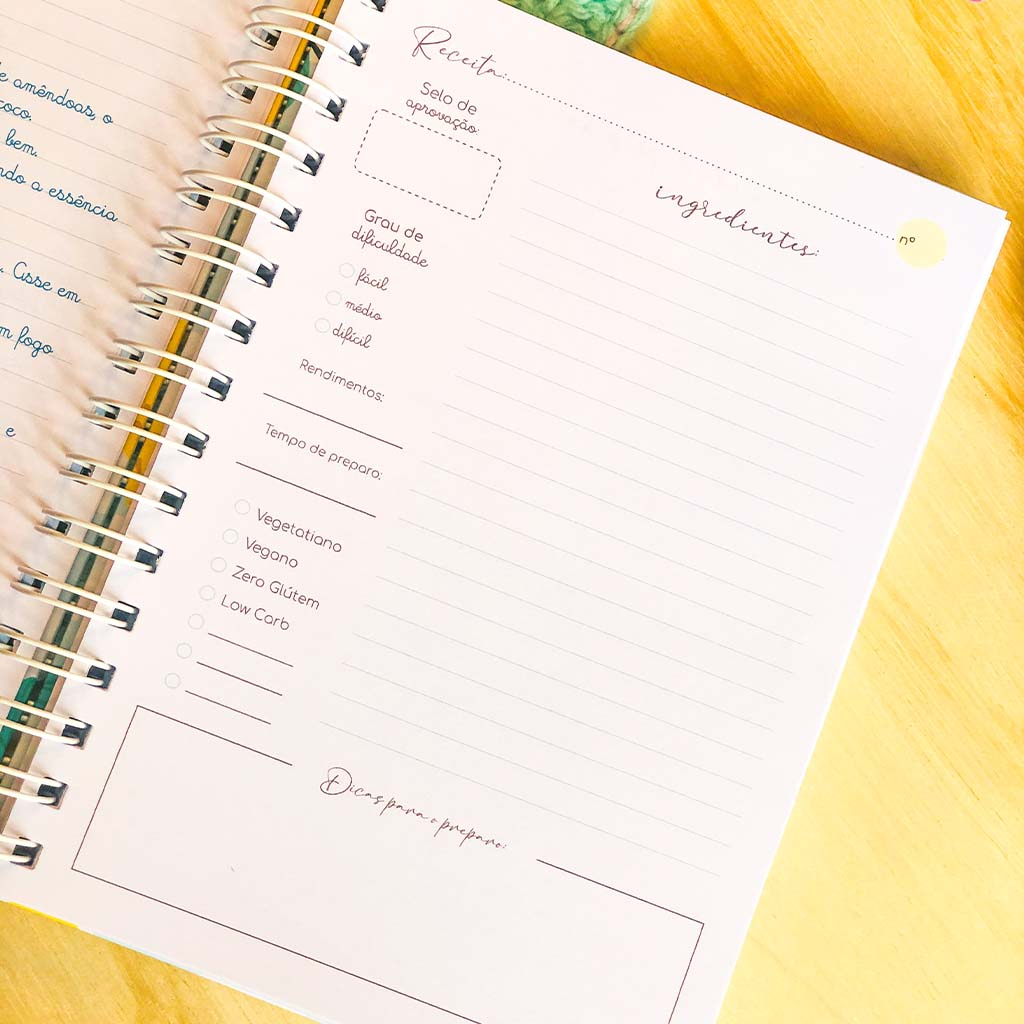 e amêndoas, o
coco.
bem.
ndo a essência
. Cisse em
m fogo
e
Receita:
nº
Selo de
aprovação:
ingredientes:
Grau de
dificuldade
fácil
médio
difícil
Rendimentos:
Tempo de preparo:
Vegetatiano
Vegano
Zero Glútem
Low Carb
Dicas para o preparo: